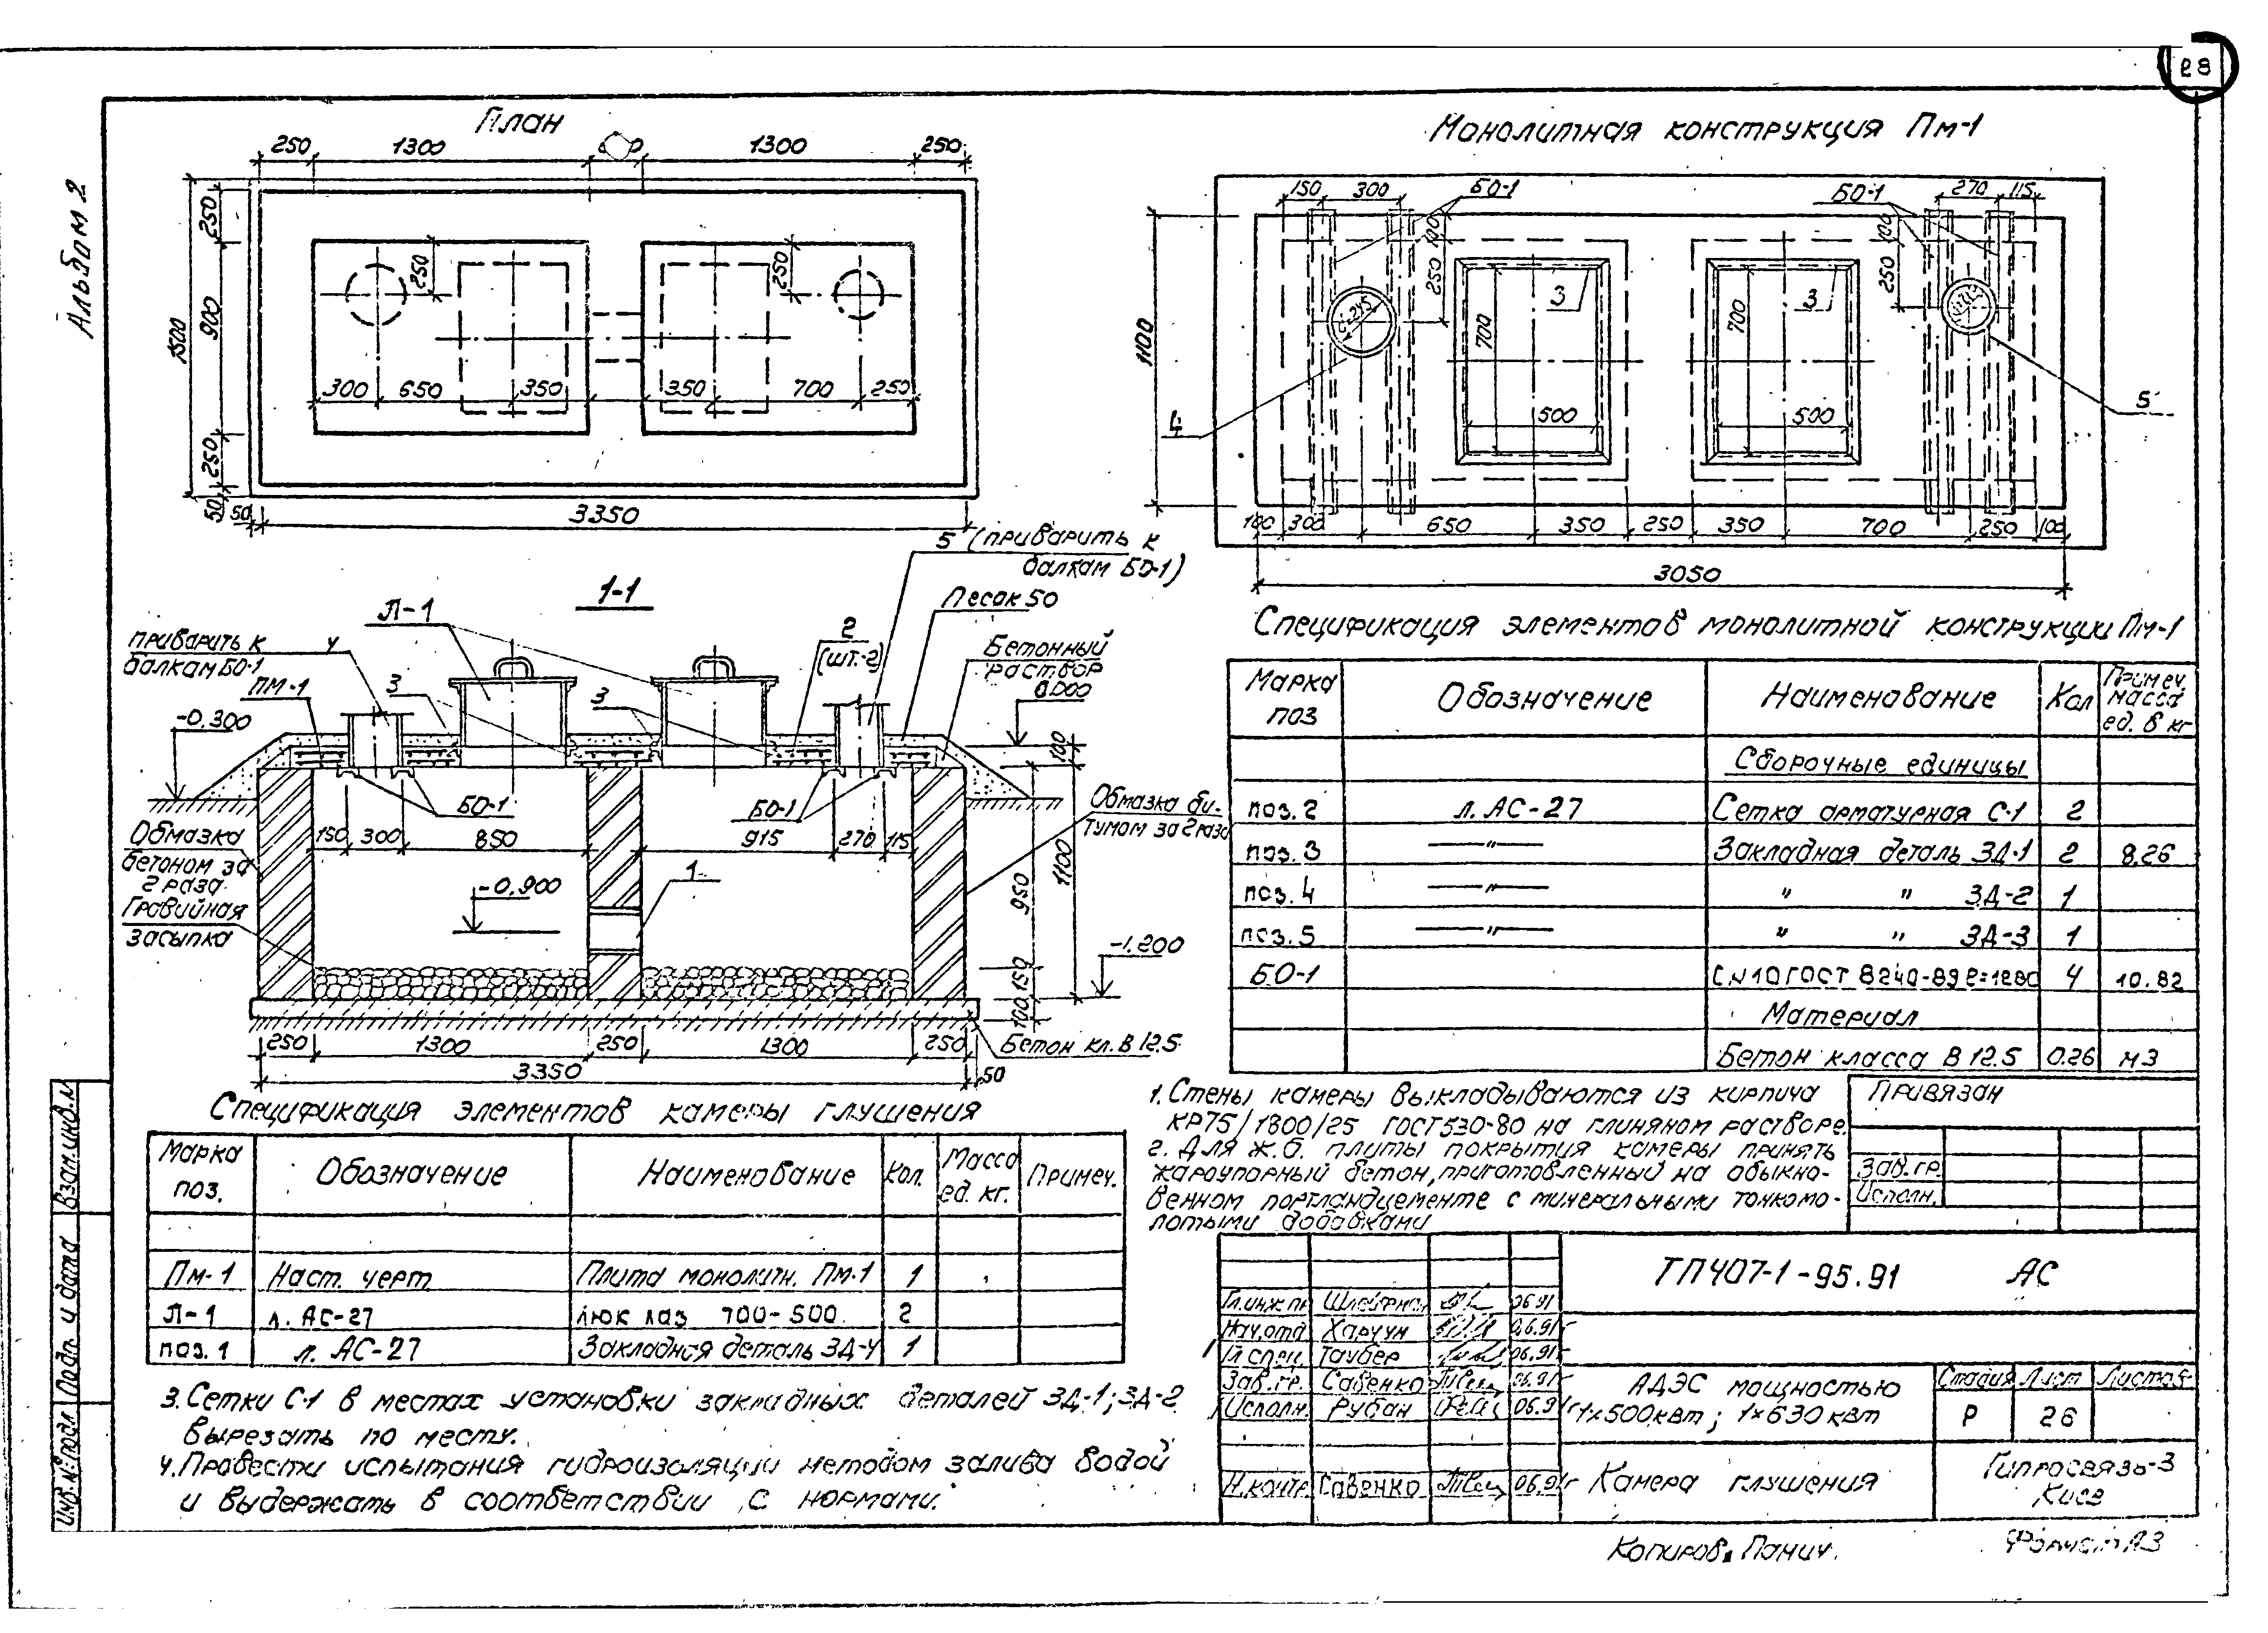 28
Альбом 2
План
250 1300 1300 250
1500
250
900
250
50
250
250
300 650 350 350 700 250
50 3350
Монолитная конструкция Пм-1
150 300 БО-1 БО-1 270 115
100
250
100
250
1100
700
3
700
3
4
5
500 500
100 300 650 350 250 350 700 250 100
3050
1-1
5 (приварить к
балкам БО-1)
Песок 50
Л-1
приварить к 4
балкам БО-1
ПМ-1
3
3
2
(шт.-2)
Бетонный
раствор
0.000
-0.300
100
БО-1
БО-1
Обмазка би-
тумом за 2 раза
Обмазка
бетоном за
2 раза
Гравийная
засыпка
150 300 850 915 270 115
1
-0.900
950
1100
-1.200
150
100
250 1300 250 1300 250
Бетон кл. В 12.5
3350 50
Спецификация элементов монолитной конструкции Пм-1
Марка поз Обозначение Наименование Кол Примеч. масса ед. в кг
Сборочные единицы
поз. 2 л. АС-27 Сетка арматурная С-1 2
поз. 3 —"— Закладная деталь ЗД-1 2 8.26
поз. 4 —"— " " ЗД-2 1
поз. 5 —"— " " ЗД-3 1
БО-1 С N10 ГОСТ 8240-89 ℓ=1280 4 10.82
Материал
Бетон класса В 12.5 0.26 м3
Спецификация элементов камеры глушения
Марка поз. Обозначение Наименование Кол. Масса ед. кг. Примеч.
Пм-1 Наст. черт. Плита монолитн. Пм-1 1
Л-1 л. АС-27 люк лаз 700-500. 2
поз. 1 л. АС-27 Закладная деталь ЗД-4 1
1. Стены камеры выкладываются из кирпича
КР75/1800/25 ГОСТ 530-80 на глиняном растворе.
2. Для ж.б. плиты покрытия камеры принять
жароупорный бетон, приготовленный на обыкно-
венном портландцементе с минеральными тонкомо-
лотыми добавками
3. Сетки С-1 в местах установки закладных деталей ЗД-1; ЗД-2
вырезать по месту.
4. Провести испытания гидроизоляции методом залива водой
и выдержать в соответствии с нормами.
Привязан
Зав. гр.
Исполн.
ТП 407-1-95.91 АС
Гл. инж. пр 06.91
Нач. отд Харчун 06.91г
Гл спец. Таубер 06.91г
Зав. гр. Савенко 06.91г
Исполн. Рубан 06.91г
Н. контр. Савенко 06.91г
АДЭС мощностью
1×500 квт; 1×630 квт
Стадия Лист Листов
Р 26
Камера глушения
Гипросвязь-3
Киев
Взам. инв. N
Подп. и дата
Инв. N: подл
Копиров. Панич.
Формат А3